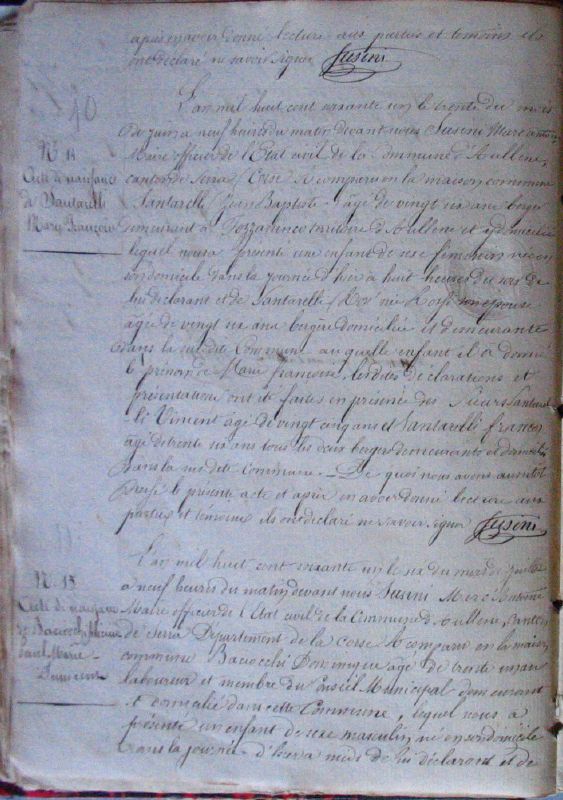 après en avoir donné lecture aux parties et témoins ils
ont déclaré ne savoir signer Susini
10
L'an mil huit cent soixante un le trente du mois
de juin à neuf heures du matin devant nous Susini Marc Antoine
Maire officier de l'Etat civil de la Commune d'Aullene,
canton de Serra (Corse) a comparu en la maison commune
Santarelli Jean Baptiste âgé de vingt six ans berger
demeurant à territoire d'Aullene et y domicilié
lequel nous a présenté une enfant de sexe féminin née en
son domicile dans la journée d'hier à huit heures du soir de
lui déclarant et de Santarelli née Rossi son épouse
âgée de vingt six ans bergere domiciliée et demeurante
dans la susdite Commune au quelle enfant il a donné
le prénom de Marie françoise, les dites déclarations et
présentation ont été faites en présence des Sieurs Santarel
li Vincent âgé de vingt cinq ans et Santarelli françois
âgé de trente six ans tous les deux bergers demeurants et domiciliés
dans la susdite Commune - De quoi nous avons aussitot
dressé le présente acte et après en avoir donné lecture aux
parties et témoins ils ont déclaré ne savoir signer Susini
N°
Acte de naissance
de Santarelli
Marie Françoise
11
L'an mil huit cent soixante un le six du mois de juillet
à neuf heures du matin devant nous Susini Marc Antoine
Maire officier de l'Etat civil de la Commune d'Aullene, canton
de Serra Département de la Corse a comparu en la maison
commune Baciocchi âgé de trente
laboureur et membre du Conseil Municipal demeurant
et domicilié dans cette Commune, lequel nous a
présenté un enfant de sexe masculin, né en son domicile
dans la journée d'hier à midi de lui déclarant et de
N° 15
Acte de naissance
de Baciocchi
Paul Marie